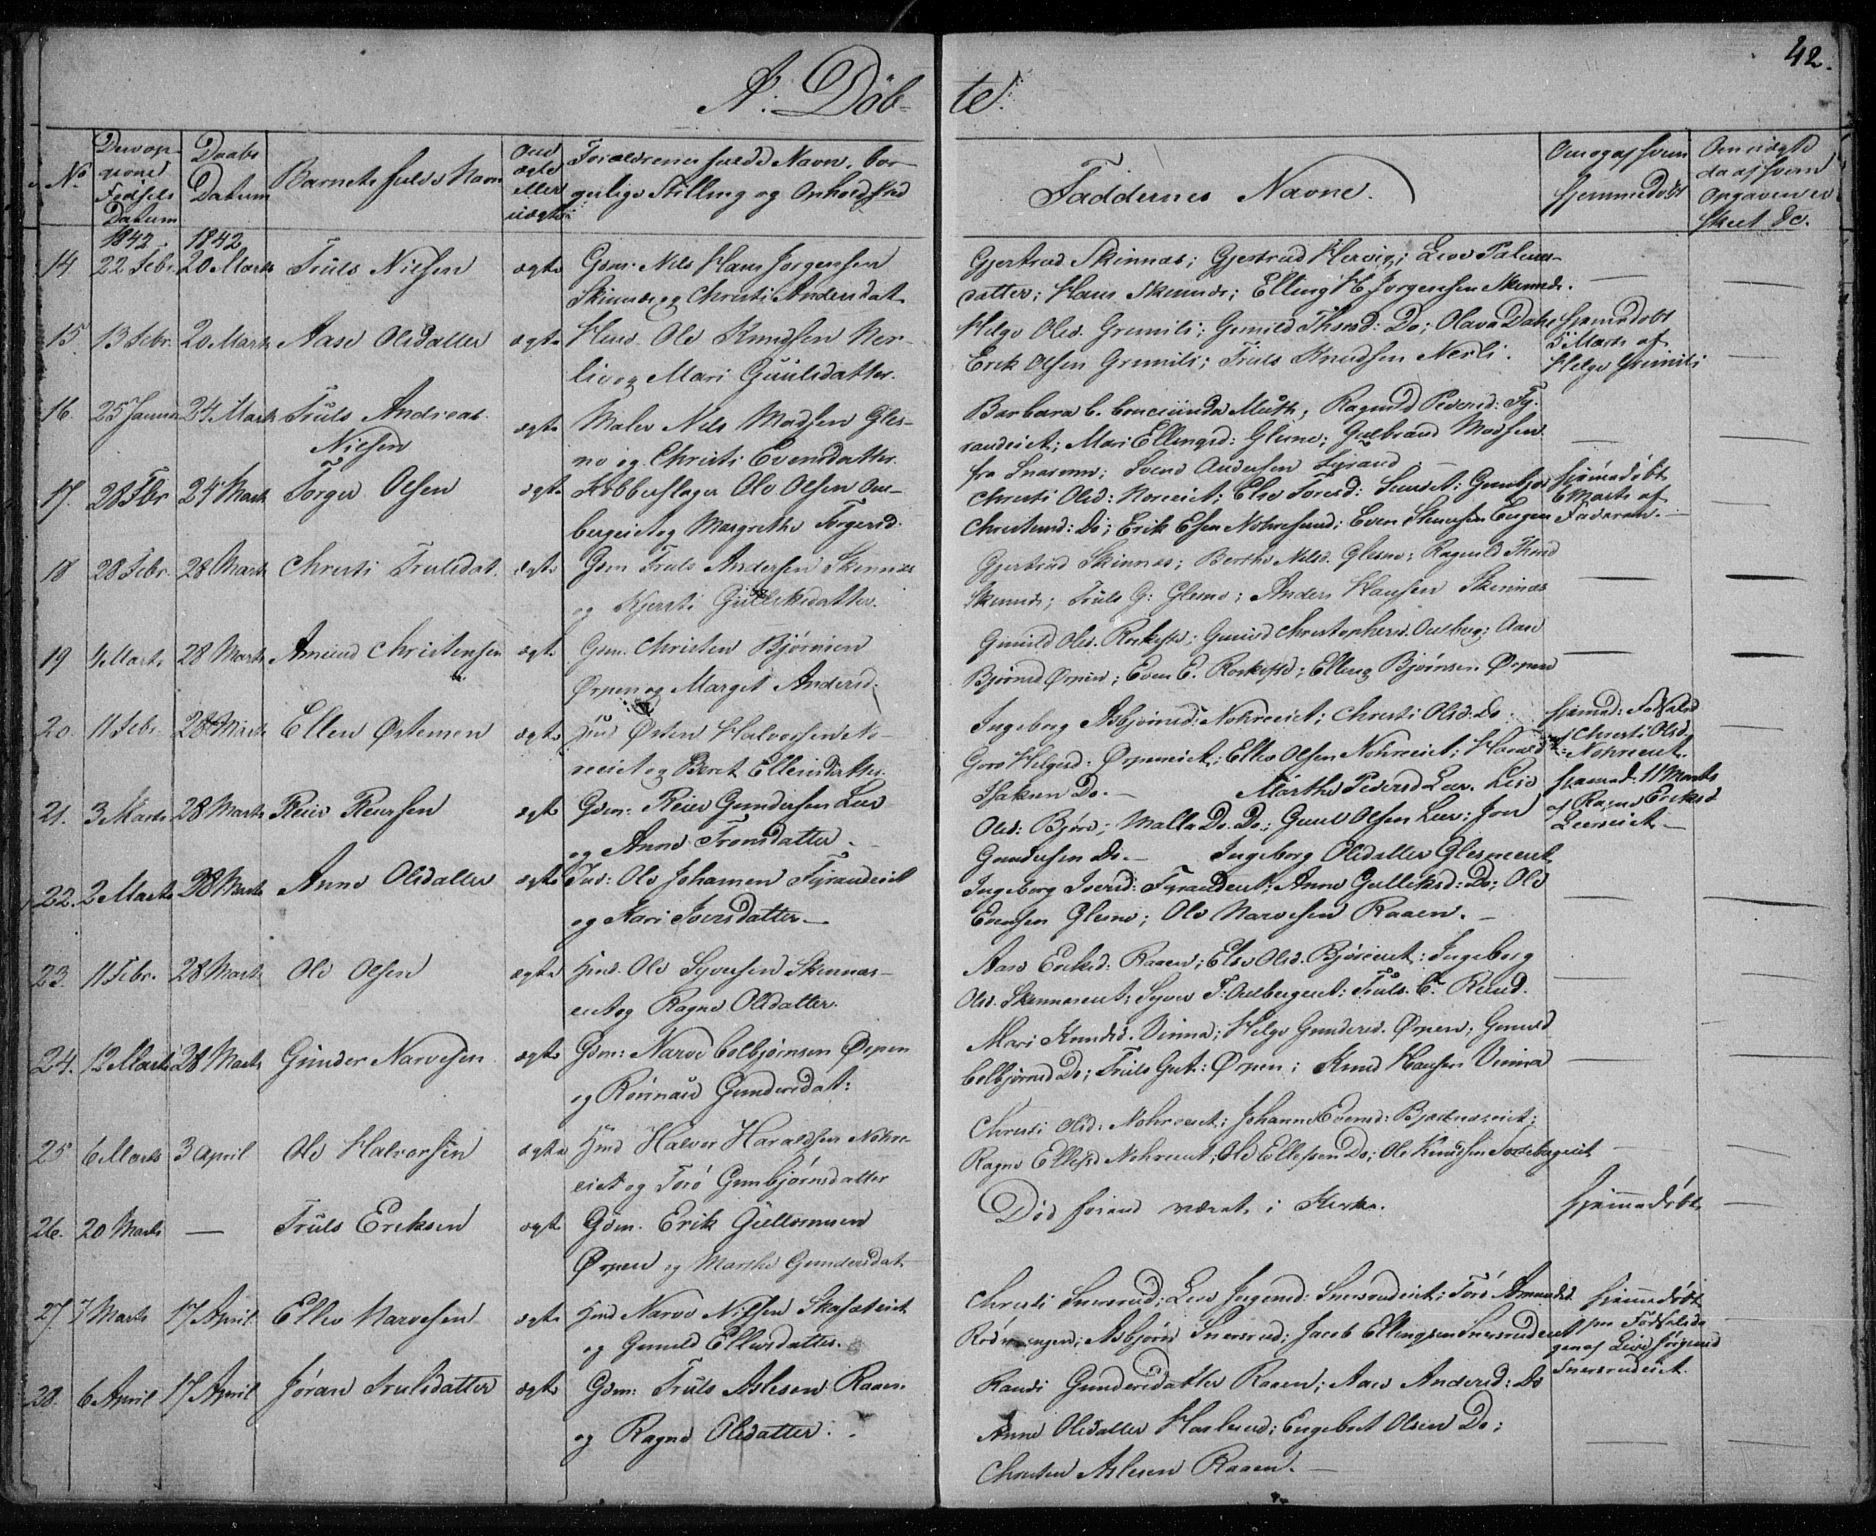 42.
A: Döb-
te:
No
Den op-
givne
Födsels
Datum
Daabs
Datum
Barnets fulde Navn
Om
ægte
eller
uægte
Forældrenes fulde Navn, bor-
gerlige Stilling og Opholdssted
Faddernes Navne.
Om og af hvem
hjemmedöbt
Om uægte
da af hvem
Opgaven er
skeet &c.
1842. 1842
14 22 Febr. 20 Marts Truls Nilsen ægte Gdm: Nils Hans Jorgensen
Skinnæs og Christi Andersdat.
Gjertrud Skinnæs; Gjertrud Hervig; Live Palm-
datter; Hans Skinnæs; Elling H Jorgensen Skinnæs.
15. 13 Febr. 20 Marts Aase Olsdatter ægte Huus. Ole Knudsen Ner-
lie og Mari Guulsdatter.
Helge Olsd. Gremili; Gunild Thorsd: Do; Olava Dahl
Erik Olsen Gremili; Truls Knudsen Nerli.
hjemedöbt
5 Marts af
Helge Grimili
16. 25 Januar 24 Marts Truls Andreas
Nilsen
ægte Maler Nils Madsen Gles-
ne og Christi Evensdatter.
Barbara C. Concunda Muth; Ragnild Pedersd: Fy-
randeiet; Mari Ellingsd: Glesne; Gulbrand Madsen
fra Snarum; Svend Andersen Fyrand
17. 28 Febr 24 Marts Torger Olsen ægte Kobberslager Ole Olsen Aas-
bergeiet og Margrethe Torgersd.
Christi Olsd: Noreeiet; Elise Toresd: Gunbjør
Christensd: Do; Erik Olsen Nohresund; Even
hjemedöbt
6 Marts af
Faderen.
18 28 Febr. 28 Marts Christi Trulsdat. ægte Gdm Truls Andersen Skinnæs
og Kjersti Gulliksdatter.
Gjertrud Skinnæs; Berthe Nilsd. Glesne; Ragnild Thorsd
Skinnæs; Truls G: Glesne; Anders Hansen Skinnæs
19 4 Marts 28 Marts Amund Christensen ægte Gdm. Christen Bjørnsen
Ørpen og Marget Andersd.
Gunild Olsd. Roskefte; Gunild Christophersd. Aasberg; Aase
Bjørnsd Ørpen; Even E. Roskefte; Elling Bjørnsen Ørpen
20. 11 Febr. 28 Marts Ellen Østensen ægte Hmd Østen Halvorsen No-
reeiet og Berit Ellensdatter.
Ingeborg Asbjörnsd: Nohreeiet; Christi Olsd. Do
Goro Helgesd: Ørpeneiet; Ellev Olsen Nohreeiet; Harald
Isaksen Do.
hjemed:
af Christi Olsd.
Nohreeiet.
21. 3 Marts 28 Marts Reier Reiersen ægte Gdm: Reier Gundersen Leer
og Anne Tronsdatter
Marthe Pedersd Leer. Live
Olsd: Bjøre; Malla Do. Do; Guul Olsen Leer; Jon
Gundersen Do.
hjemed: 11 Marts
af Ragne Eriksd
Leereiet
22. 2 Marts 28 Marts Anne Olsdatter ægte Ind: Ole Johannesen Fyrandeiet
og Kari Iversdatter.
Ingeborg Olsdatter Glesneeiet
Ingeborg Iversd: Fyrandeiet; Anne Gulliksd: Do; Ole
Evensen Glesne; Ole Narvesen Raaen.
23. 11 Febr. 28 Marts Ole Olsen ægte Hmd. Ole Syversen Skinnæs-
eiet og Ragne Olsdatter.
Aase Eriksd: Raaen; Else Olsd. Bjøreeiet; Ingeborg
Olsd. Skinnæseiet; Syver T: Aasbergeiet; Truls. C. Ruud.
24. 12 Marts 28 Marts Gunder Narvesen ægte Gdm: Narve Colbjørnsen Ørpen
og Rønnaug Gundersdat:
Mari Knudsd. Vinna; Helge Gundersd. Ørpen; Gunild
Colbjørnsd Do; Truls Gut: Ørpen; Knud Hansen Vinna
25 6 Marts 3 April Ole Halvorsen ægte Hmd Halvor Haraldsen Nohre-
eiet og Torö Gunbjørnsdatter
Christi Olsd: Nohreeiet; Johanne Evensd: Bjødneseiet;
Ragne Ellefsd Nohreeiet; Ole Ellefsen Do; Ole Knudsen
26. 20 Marts — Truls Eriksen ægte Gdm. Erik Gullormsen
Ørpen og Marthe Gundersdat
Död forend været i Kirke.
hjemmedöbt
27. 7 Marts 17 April Ellev Narvesen ægte Hmd Narve Nilsen
og Gunild Ellevsdatter.
Christi Snersrud; Live Jørgensd: Snersrudeiet; Toré Amundsd
Asbjørn Snersrud; Jacob Ellingsen Snersrudeiet
hjemmedöbt
paa Födselsda-
gen af Live Jørgensd
Snersrudeiet.
28. 6 April 17 April Jöran Trulsdatter ægte Gdm: Truls Aslesen Raaen
og Ragne Olsdatter.
Randi Gundersdatter Raaen; Aase Andersd: Do
Anne Olsdatter Haslerud; Engebret Olsen Do;
Christen Aslesen Raaen.